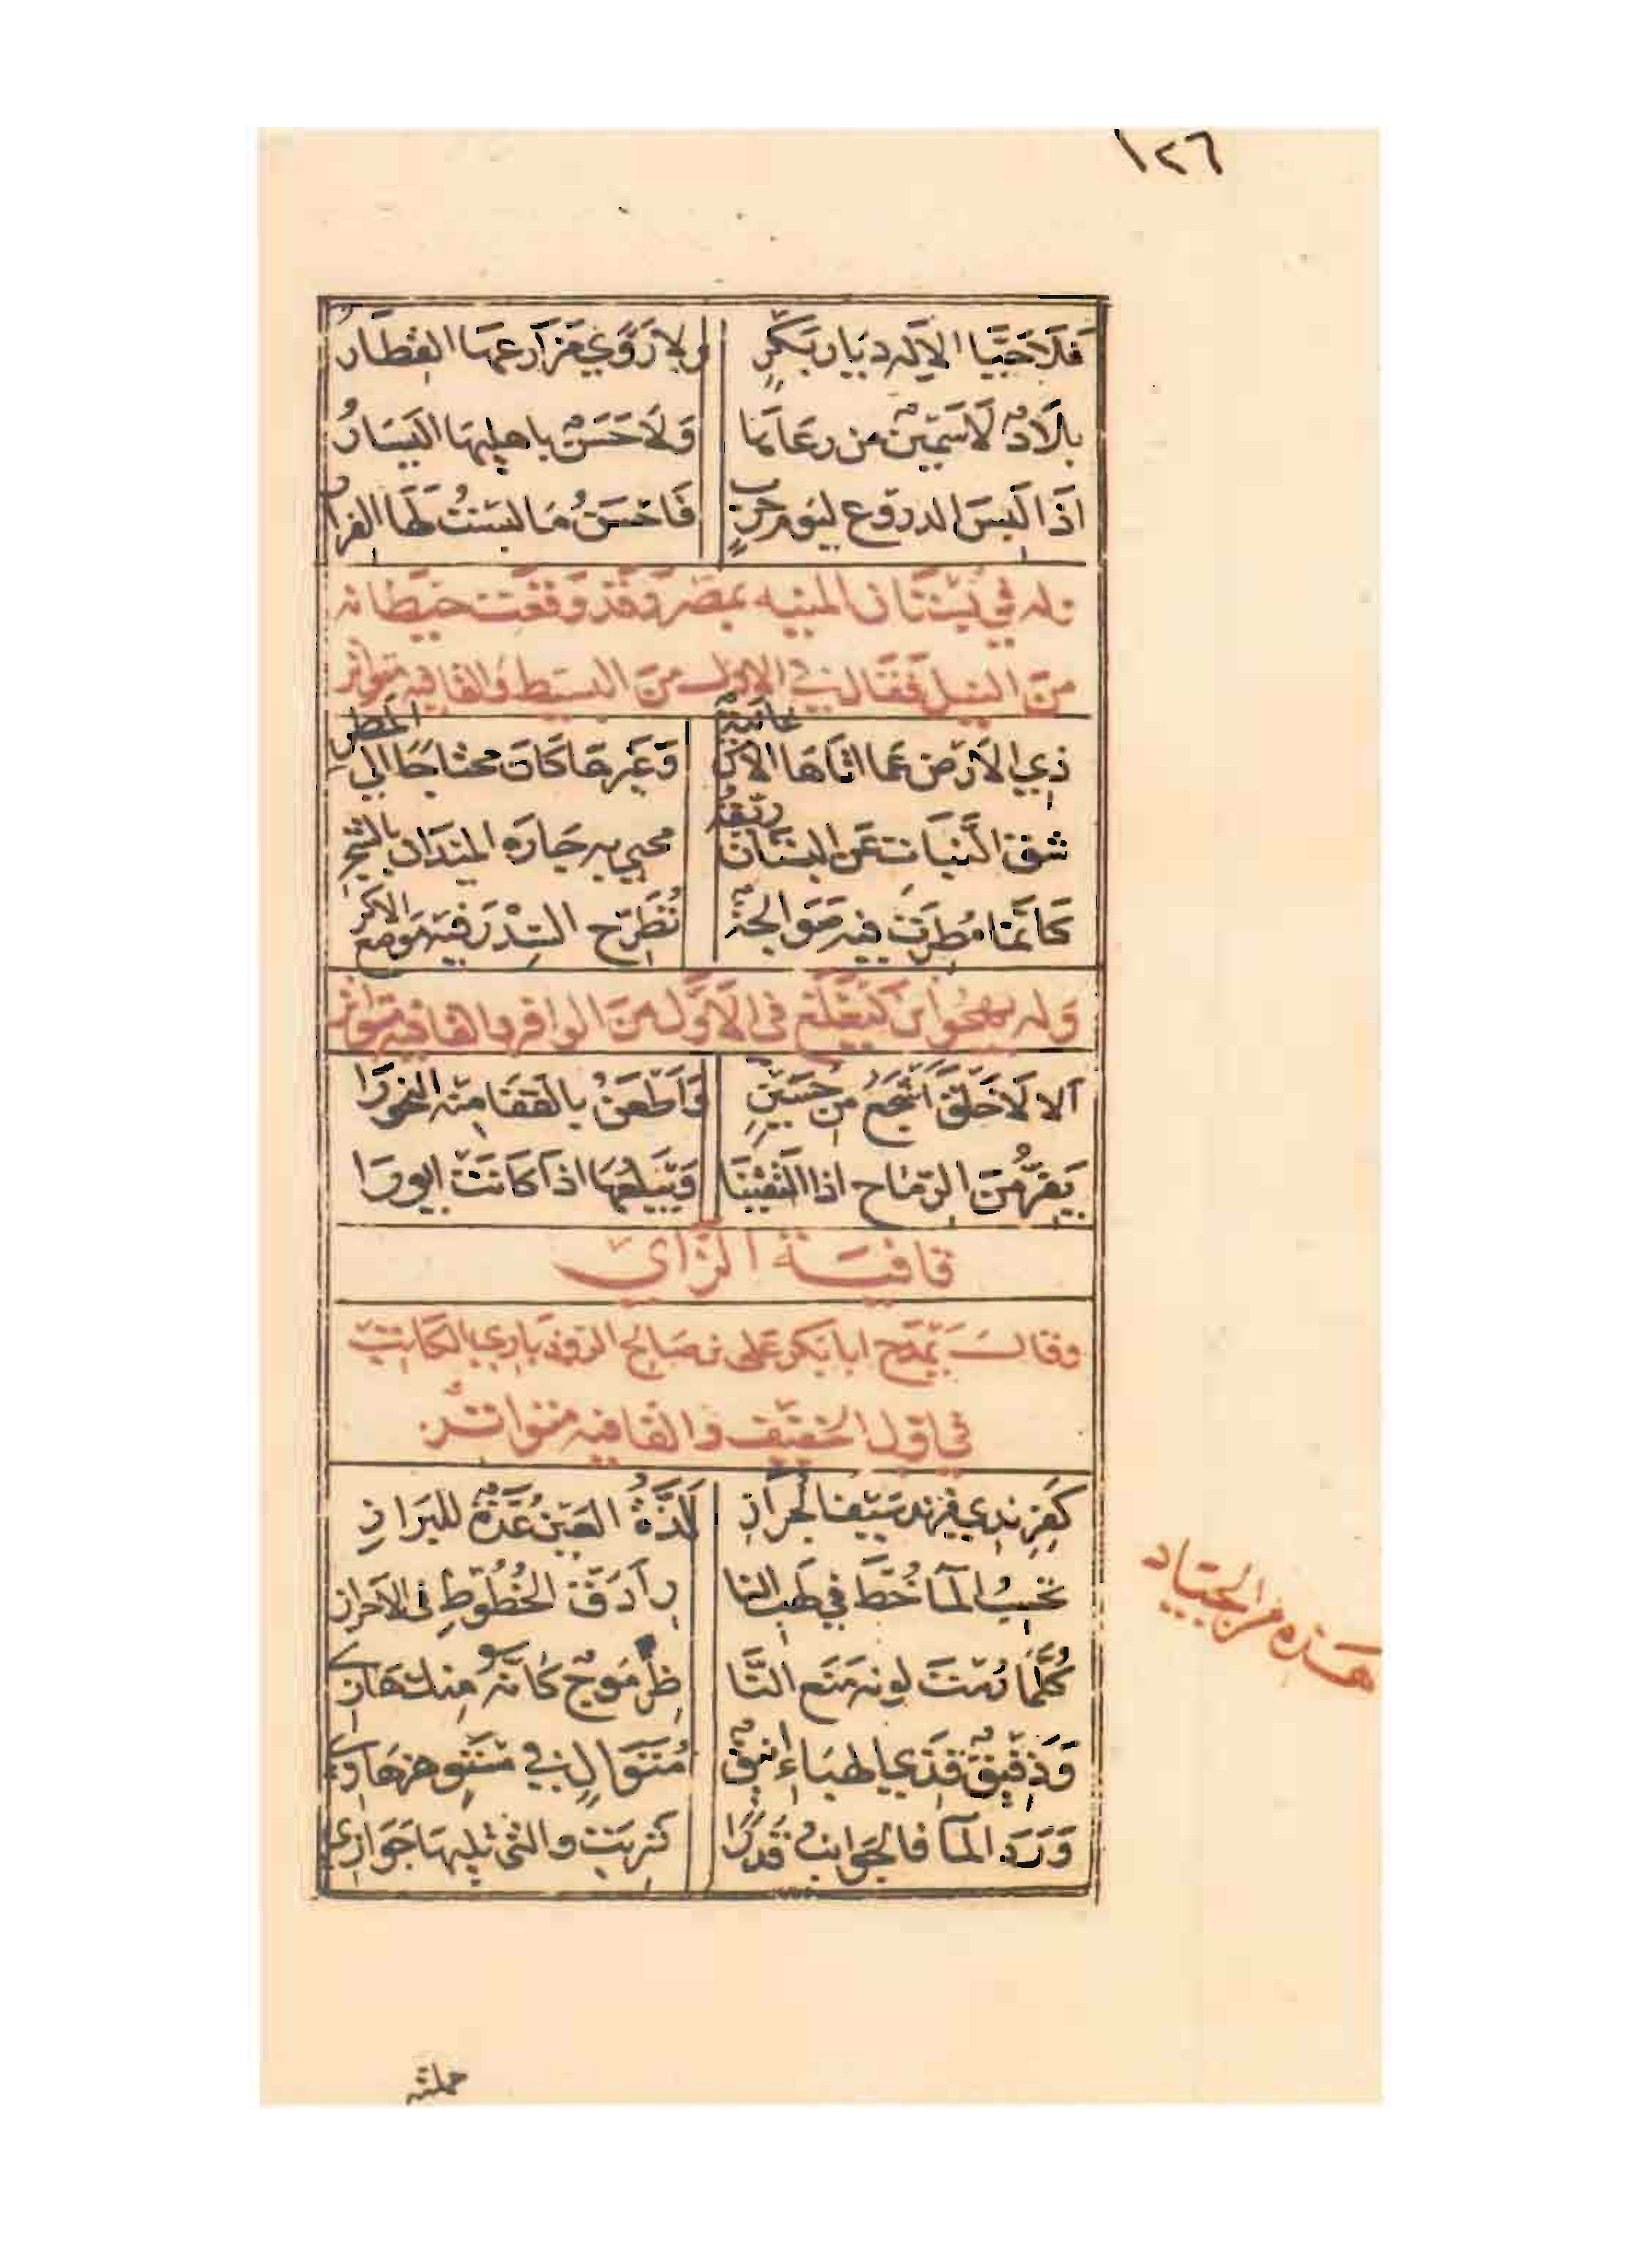 ١٢٦
فَلَا حَيَّا الاله دِيَار بَكْرٍ ولا رَوَّي مَزَارعهَا القِطَارُ
بِلَادٌ لَا سَمِينٌ من رعَاهَا وَلَا حَسَنٌ باهلِهَا اليَسَارُ
اذَا لُبِسَ الدروع ليَومِ حَربٍ فَاحْسَنُ مَا لبسْتَ لَهَا الفرار
وله في بُسْتَان المنيه بمصْر وَقَد وَقَعَت حيطانه
من النيل فقال في الاول من البسيط والقافيه متواتر
ذِي الارْض عَما اتَاهَا الامْسَ غَانيةٌ وَغَيرهَا كَانَ محتَاجًا الي المَطَر
شق النَّبَات عَن البستَان رَيّقُهُ محيي به جَارَه الميدَان بالشَّجَر
كَانَّمَا مُطِرَت فيه صَوَالجَةٌ تُطَرِّح السِّدْرَ فيه مَوضع الاكر
وَله يهجُوا بن كَيَغْلَغ في الاوَّل مِنَ الوافر والقافيه متواتر
ألا لَا خَلْقَ اشْجَعُ مِن حُسَيْنٍ وَاَطْعَنُ بالقَفَا مِنه النحورَا
يَفِرُّ مِنَ الرِّمَاح اذا التَقَيْنَا وَيَبْلَعُهَا اذَا كَانَتْ ايورَا
قَافيَة الزَّاي
وقال يَمْدَح ابا بَكر عَلى بن صَالح الروذبَاري الكاتِبْ
في اول الخفيف والقافيه متواتر
كَفِرِنْدِي فِرِنْد سَيْفي الجُرَازِ لَذَّةُ العَيْن عُدَّةٌ للبَرَازِ
تَحْسِبُ المآ خُطَّ في لَهَب النا رِ اَدَقَّ الخُطُوْطِ في الاحراز
كُلَّمَا رُمْتَ لونه مَنَع النَّا ظِرَ مَوجٌ كَانَّه مِنكَ هَازِي
وَدَقِيقٌ قَذَي الهبَاءِ انيقٌ مُتَوَالٍ في مُسْتَوٍ هزهَازِ
وَرَدَ المآ فالجَوَانبُ قَدرًا شَرِبَتْ والتى تليهَا جَوَازِي
هذه من الجياد
حملته